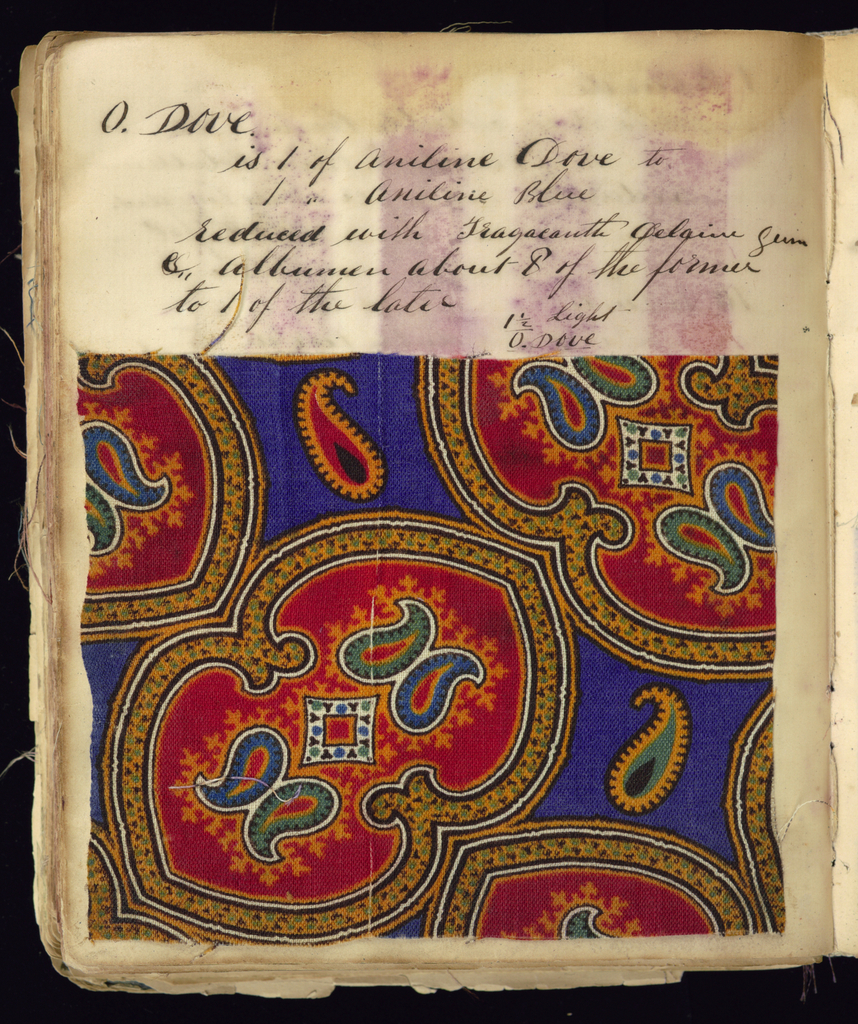 O. Dove.
is 1 of Aniline Dove to
1 " Aniline Blue
reduced with Tragacanth Delaine gum
& Albumen about 8 of the former
to 1 of the later
1½ Light
O. Dove